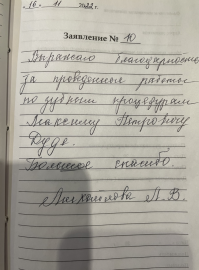 16. 11 2022г.
Заявление № 10
Выражаю благодарность
за проведенные работы
по зубным процедурам
Максиму Петровичу
Дуде.
Большое спасибо.
Л. В.